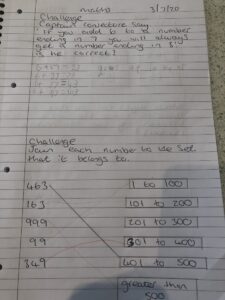 maths 3/7/20
Challenge
Captain conjecture Say
If you add 6 to a number
ending in 7 you will always
get a number ending in 3
is he correct?
Challenge
Join each number to the Set
that it belongs to.
463 1 to 100
163 101 to 200
999 201 to 300
99 301 to 400
349 401 to 500
greater than
500